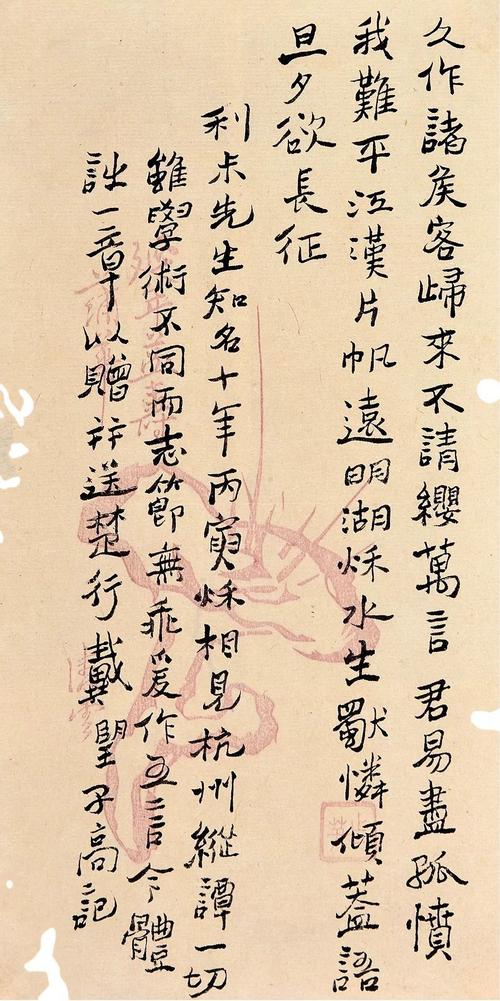 久作諸矦客歸來不請纓萬言君易盡孤憤
我難平江漢片帆遠明湖秌水生獸憐傾葢語
旦夕欲長征
利未先生知名十年丙寅秌相見杭州縱譚一切
雖學術不同而志節無乖爰作五言今體
詩一章以贈并送楚行戴望子高記